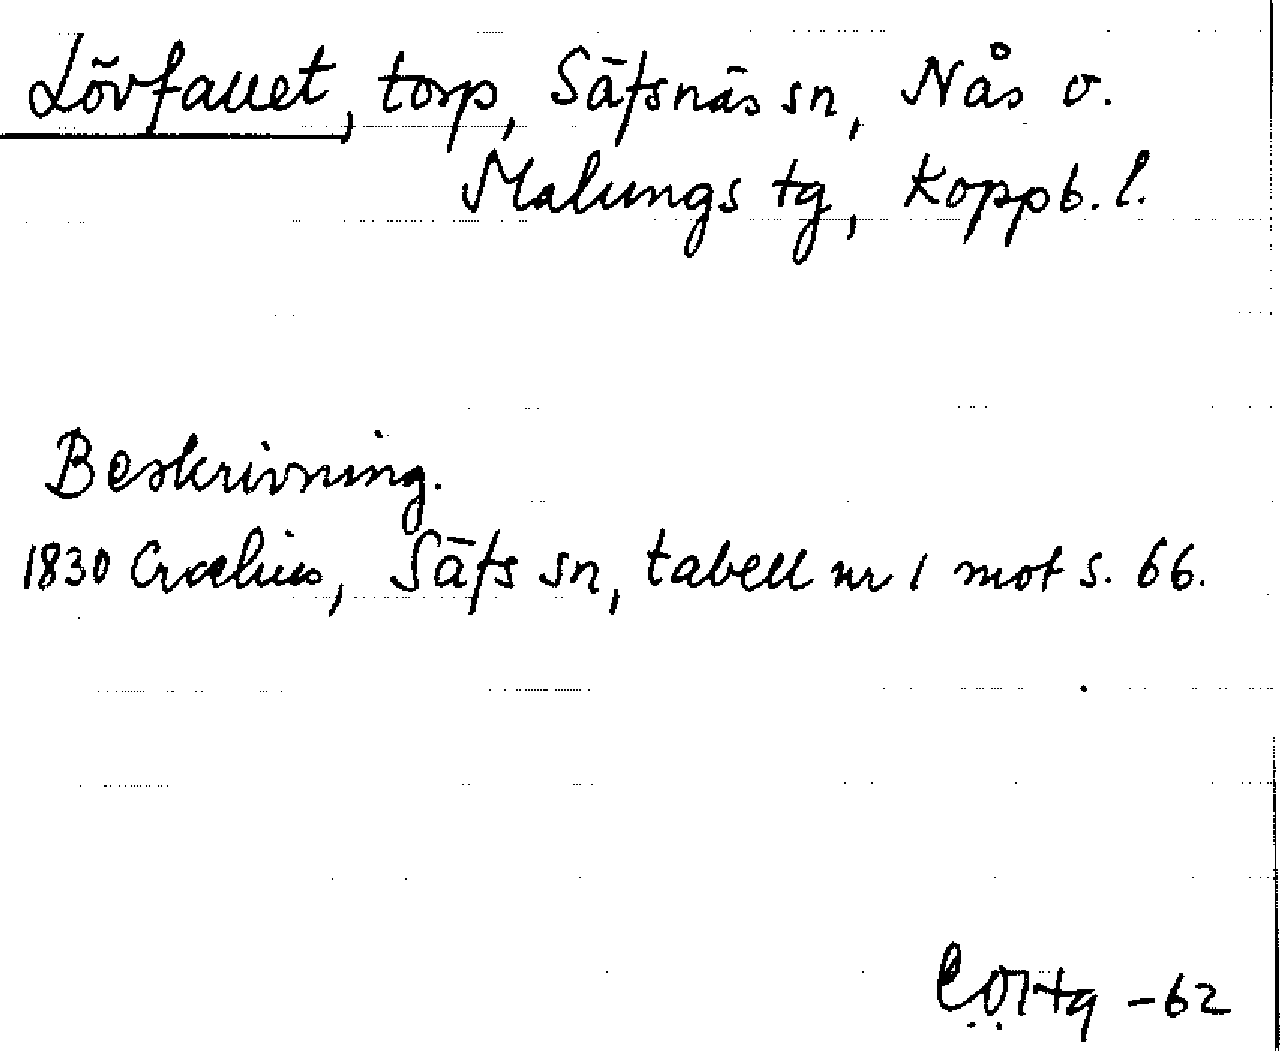 Lövfallet, torp, Säfsnäs sn, Nås o.
Malungs tg, Koppb. l.
Beskrivning.
1830 Crælius, Säfs sn, tabell nr 1 mot s. 66.
-62